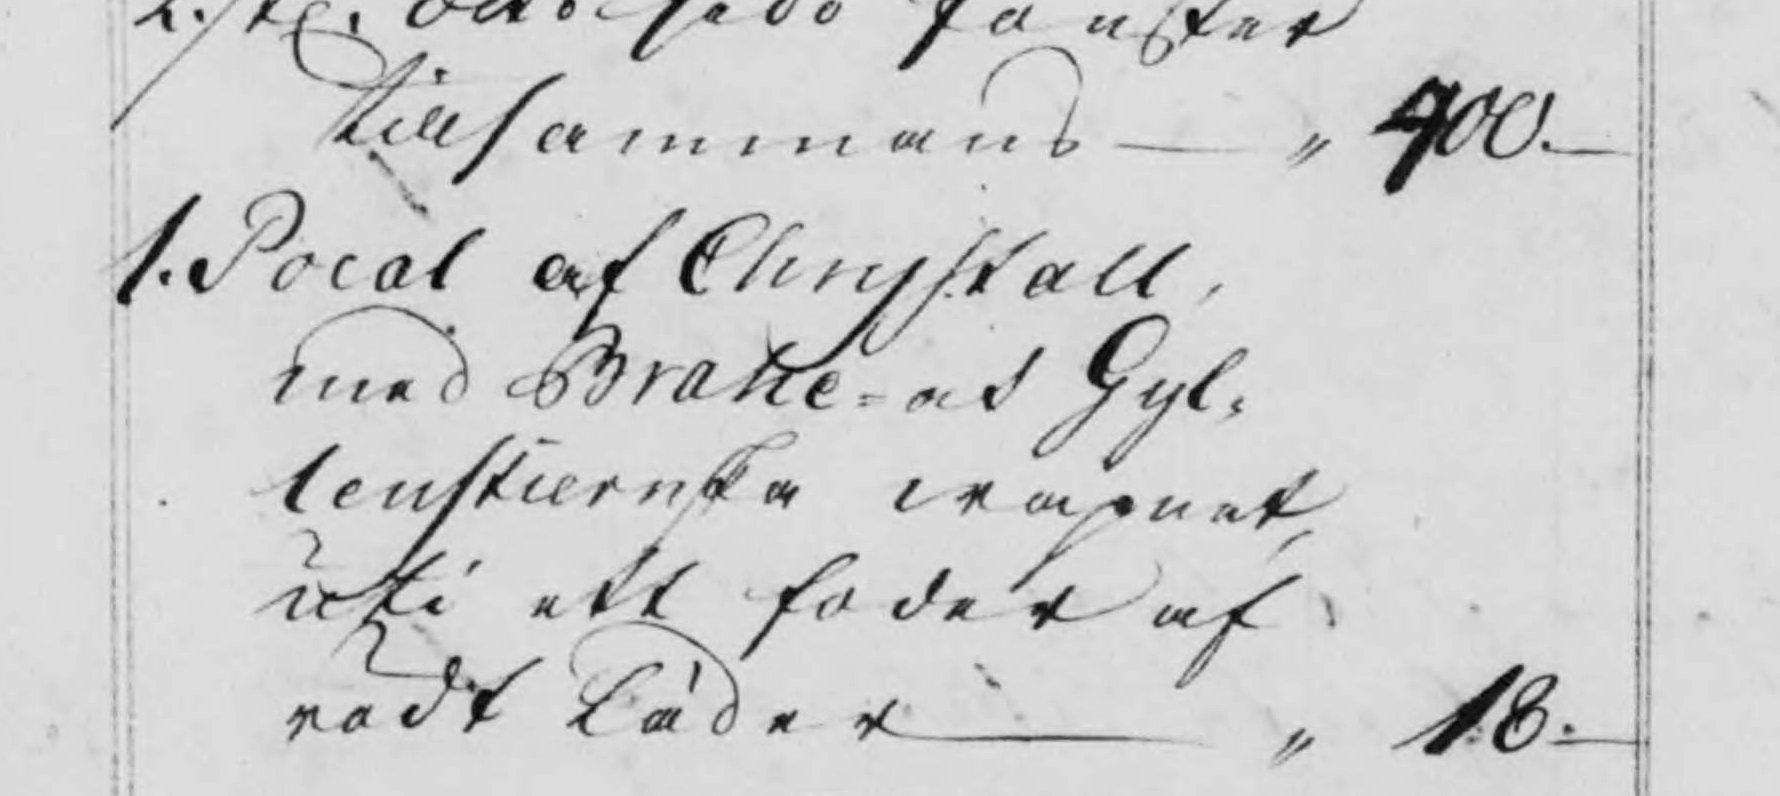 2. st. fönster
tillsammans — " 900. —
1. Pocal af Chrystall,
med Brahe= ock Gyl=
lenstiernska wapnet,
uti ett foder af
rödt Läder — " 18. —